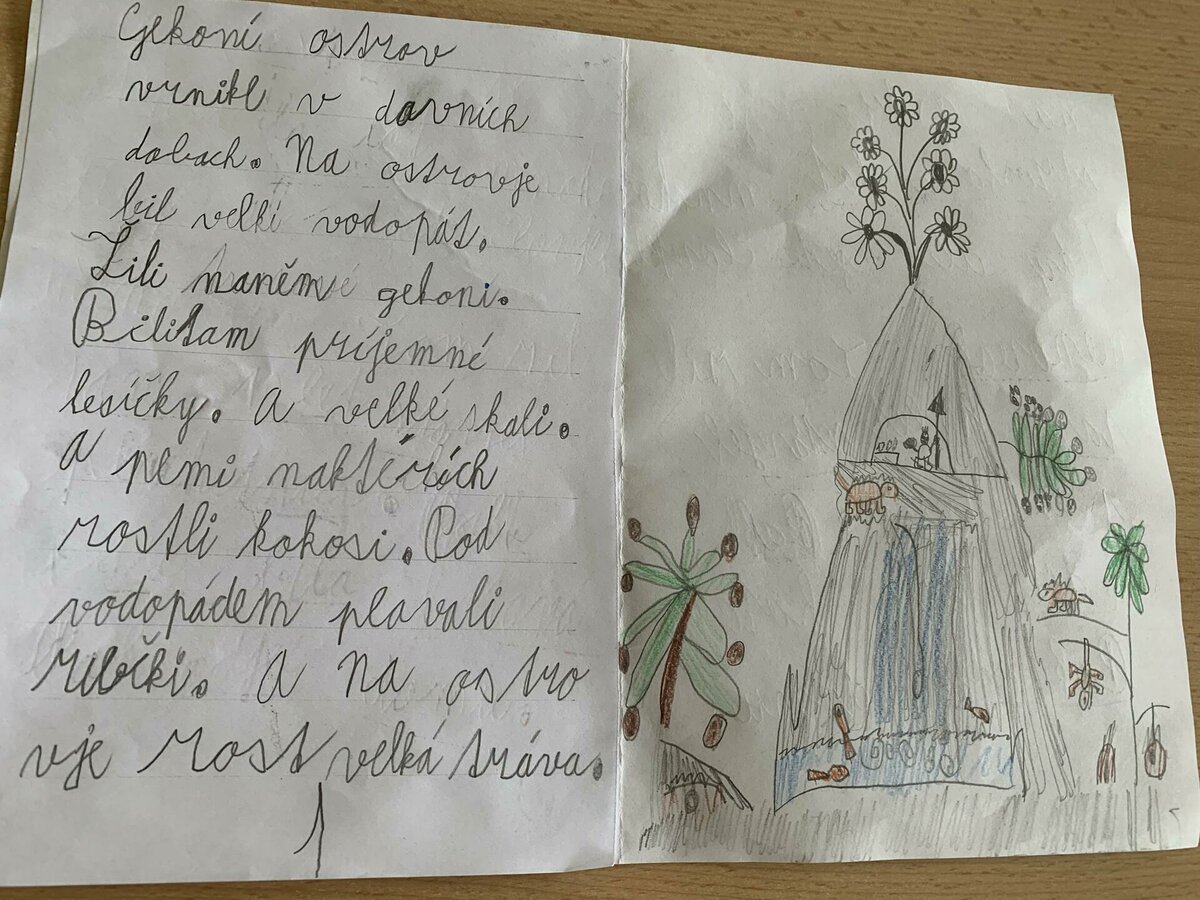 Gekoní ostrov
vznikl v davních
dobach. Na ostrovje
bil velkí vodopát.
Žili naněm gekoni.
Bilitam príjemné
lesíčky. A velké skali.
A plmi naktérích
rostli kokosi. Pod
vodopádem plavali
ribički. A na ostro
vje rost velká tráva.
1